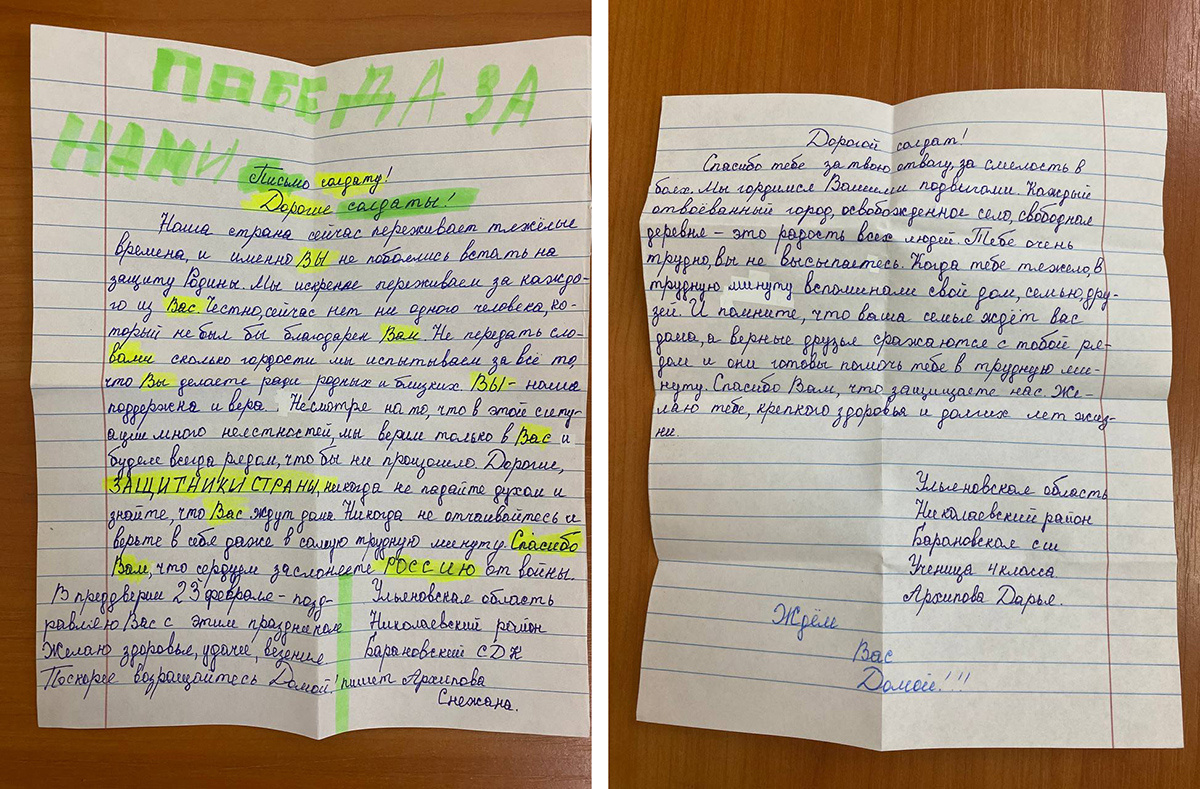 ПАБЕДА ЗА
НАМИ
Письмо солдату!
Дорогие солдаты!
Наша страна сейчас переживает тяжёлые
времена, и именно ВЫ не побоялись встать на
защиту Родины. Мы искренне переживаем за каждо-
го из Вас. Честно, сейчас нет ни одного человека, ко-
торый не был бы благодарен Вам. Не передать сло-
вами сколько гордости мы испытываем за всё то,
что Вы делаете ради родных и близких. ВЫ - наша
поддержка и вера. Несмотря на то, что в этой ситу-
ации много неясностей, мы верим только в Вас и
будем всегда рядом, что бы ни произошло. Дорогие,
ЗАЩИТНИКИ СТРАНЫ, никогда не падайте духом и
знайте, что Вас ждут дома. Никогда не отчаивайтесь и
верьте в себя даже в самую трудную минуту. Спасибо
Вам, что сердцем заслоняете РОССИЮ от войны.
В преддверии 23 февраля - позд-
равляю Вас с этим праздником
Желаю здоровья, удачи, везения.
Поскорее возращайтесь Домой!
Ульяновская область
Николаевский район
Барановский СДК
пишет Архипова
Снежана.
Дорогой солдат!
Спасибо тебе за твою отвагу, за смелость в
боях. Мы гордимся Вашими подвигами. Каждый
отвоёванный город, освобожденное село, свободная
деревня - это радость всех людей. Тебе очень
трудно, вы не высыпаетесь. Когда тебе тяжело, в
трудную минуту вспоминали свой дом, семью, дру-
зей. И помните, что ваша семья ждёт вас
дома, а верные друзья сражаются с тобой ря-
дом и они готовы помочь тебе в трудную ми-
нуту. Спасибо Вам, что защищаете нас. Же-
лаю тебе, крепкого здоровья и долгих лет жиз-
ни.
Ульяновская область
Николаевский район
Барановская сш
Ученица 4 класса.
Архипова Дарья.
Ждём
Вас
Домой!!!